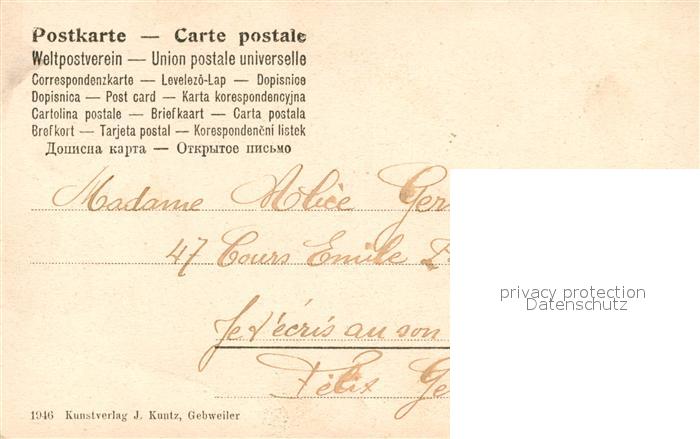 Postkarte — Carte postale
Weltpostverein — Union postale universelle
Correspondenzkarte — Levelező-Lap — Dopisnice
Dopisnica — Post card — Karta korespondencyjna
Cartolina postale — Briefkaart — Carta postala
Brefkort — Tarjeta postal — Korespondenční listek
Дописна карта — Открытое письмо
Madame Alice Ger
47 Cours Emile
privacy protection
Datenschutz
Je t'écris au son
Félix Ge
1946 Kunstverlag J. Kuntz, Gebweiler